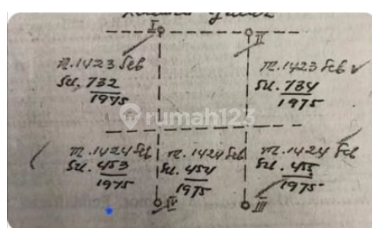 I
II
M.1423 Seb
SU. 732
1975
M.1423 Seb
SU. 734
1975
rumah123
M.1424 Seb
SU. 453
1975
M.1424 Seb
SU. 454
1975
M.1424 Seb
SU. 455
1975
IV
III